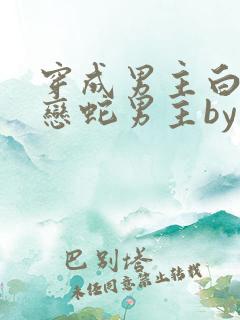 穿成男主白
戀蛇男主by
巴别塔
未经同意禁止转载